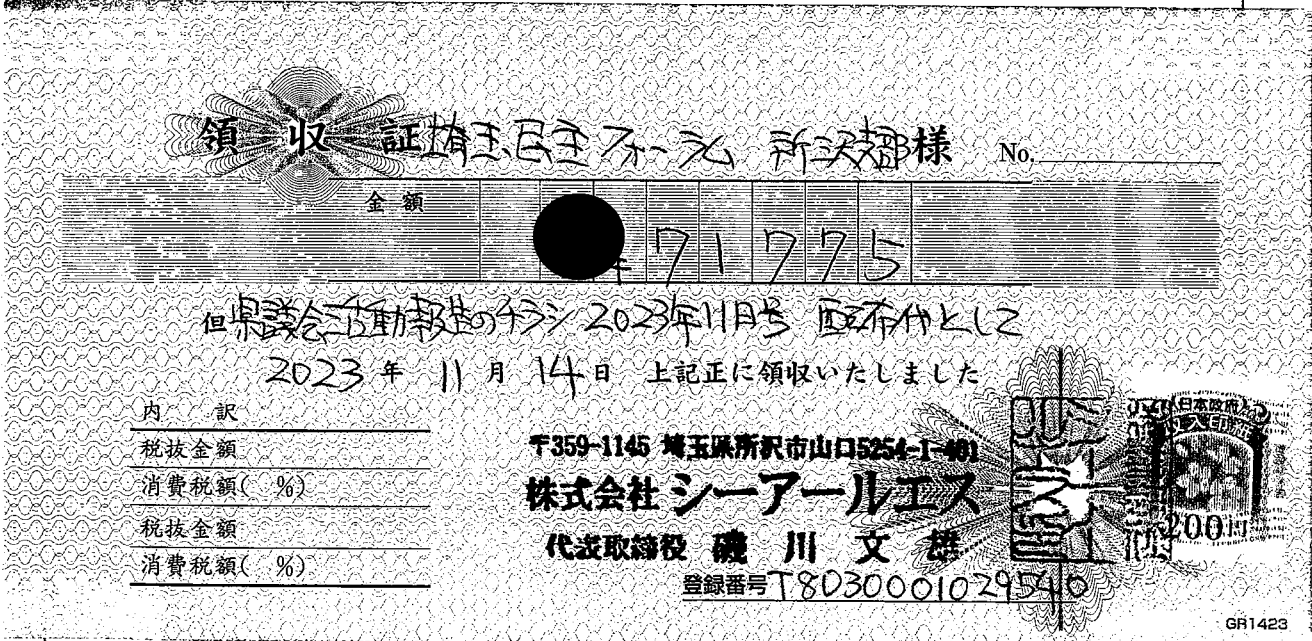 領収証 埼玉民主フォーラム 所沢支部様 No.
金額
¥71775
但県議会活動報告のチラシ 2023年11月号 配布代として
2023年 11月 14日 上記正に領収いたしました
内訳
税抜金額
消費税額( %)
税抜金額
消費税額( %)
〒359-1145 埼玉県所沢市山口5254-1-401
株式会社 シーアールエス
代表取締役 磯川文雄
登録番号 T8030001029540
日本政府
収入印紙
200円
GR1423